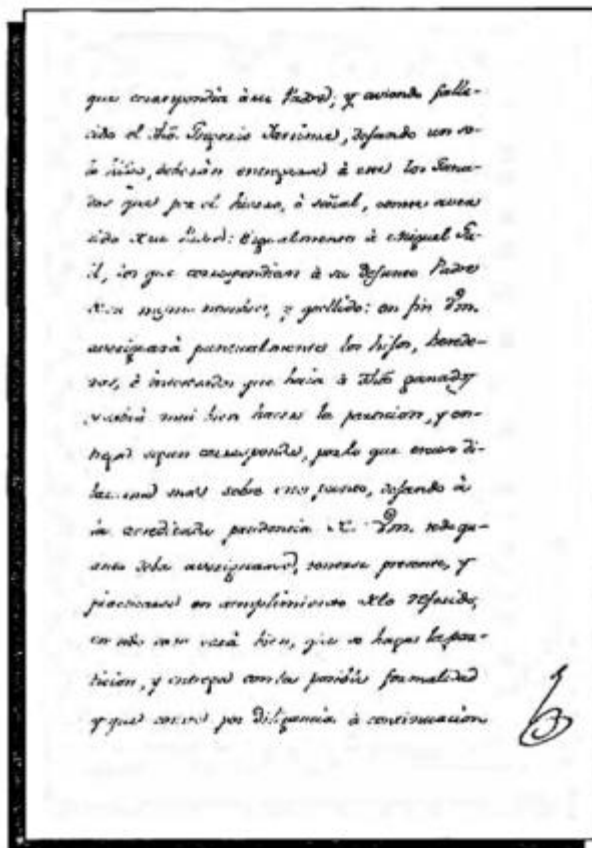 que correspondia à su Padre; y aviendo falle-
cido el dho. Gregorio, dejando un so-
lo hijo, deberàn entregarse à este los Gana-
dos que por el hierro, ò señal, conste aver
sido de su Padre: Igualmente à Miguel
los que correspondian à su difunto Padre
de su mismo nombre, y apellido: en fin Vm.
averiguarà puntualmente los hijos, herede-
ros, è interesados que havia à dho ganado y
sabrà mui bien hacer la particion, y en-
trega segun corresponde, por lo que escuso di-
latarme mas sobre este punto, dejando à
la acreditada prudencia de Vm. todo qu-
anto deba averiguarse, tenerse presente, y
practicarse en cumplimiento de lo referido,
en cuio caso serà bien, que se haga la par-
ticion, y entrega con la posible formalidad
y que conste por diligencia à continuacion